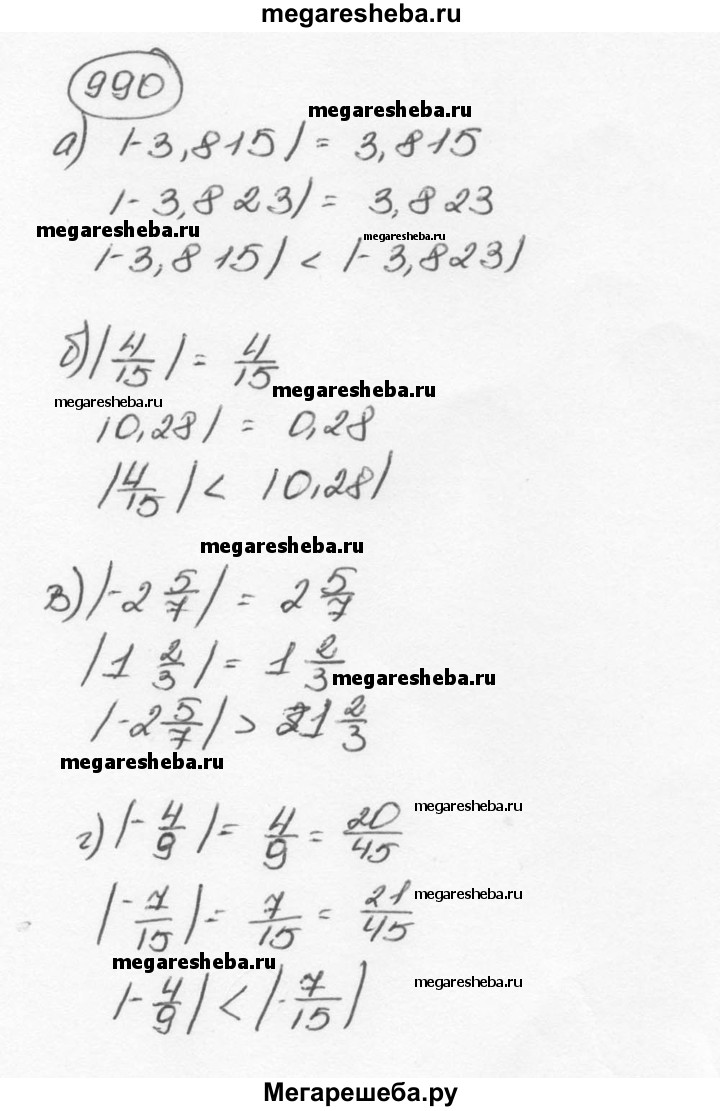 megaresheba.ru
990
megaresheba.ru
а) |-3,815| = 3,815
|-3,823| = 3,823
megaresheba.ru
megaresheba.ru
|-3,815| < |-3,823|
б) |4/15| = 4/15
megaresheba.ru
megaresheba.ru
|0,28| = 0,28
|4/15| < |0,28|
megaresheba.ru
в) |-2 5/7| = 2 5/7
|1 2/3| = 1 2/3
megaresheba.ru
|-2 5/7| > 1 2/3
megaresheba.ru
megaresheba.ru
г) |-4/9| = 4/9 = 20/45
megaresheba.ru
|-7/15| = 7/15 = 21/45
megaresheba.ru
megaresheba.ru
|-4/9| < |-7/15|
Мегарешеба.ру